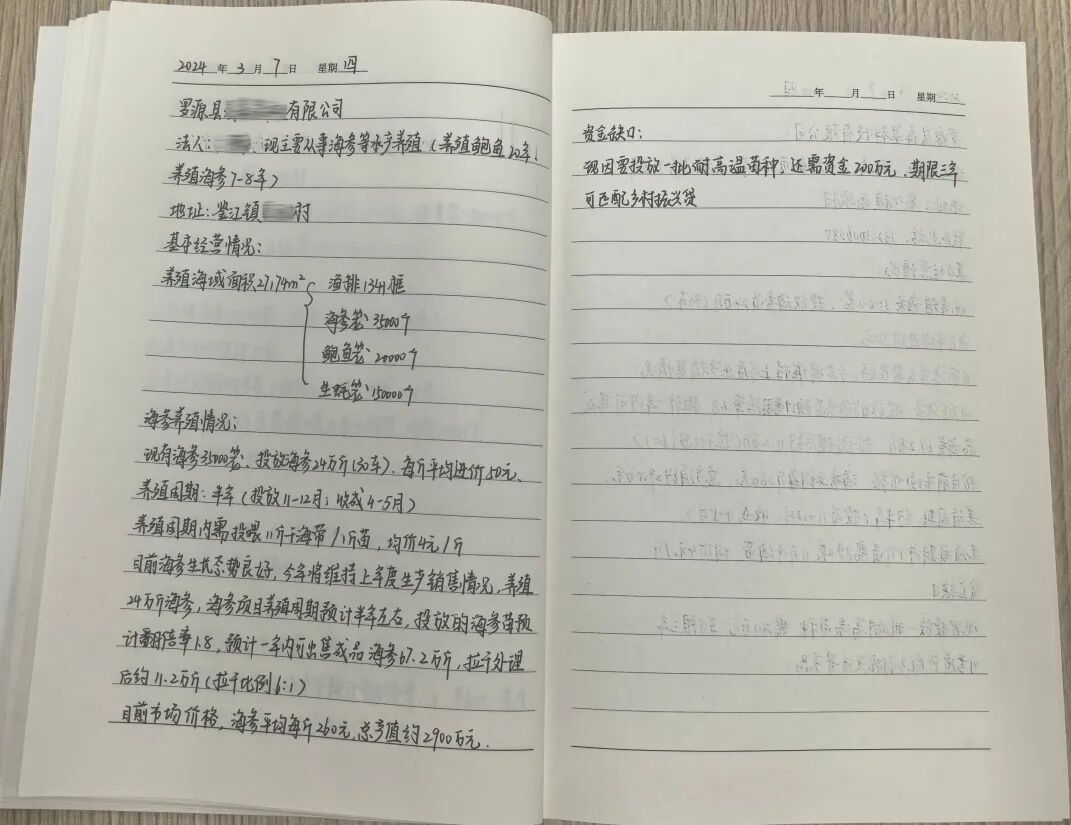 2024 年 3 月 7 日 星期 四
罗源县 有限公司
法人: 现主要从事海参等水产养殖(养殖鲍鱼20年、
养殖海参7-8年)
地址:鉴江镇 村
基本经营情况:
养殖海域面积27174m² 渔排1341框
海参笼:35000个
鲍鱼笼:20000个
生蚝笼:150000个
海参养殖情况:
现有海参35000笼、投放海参24万斤(30车)、每斤平均进价50元.
养殖周期:半年(投放11-12月;收成4-5月)
养殖周期内需投喂11斤干海带/1斤苗,均价4元/斤
目前海参生长态势良好,今年将维持上年度生产销售情况,养殖
24万斤海参,海参项目养殖周期预计半年左右,投放的海参苗预
计翻倍率1.8,预计一年内可出售成品海参67.2万斤,拉干处理
后约11.2万斤(拉干比例6:1)
目前市场价格,海参平均每斤260元,总产值约2900万元.
年 月 日 星期
资金缺口:
现因需投放一批耐高温苗种,还需资金200万元,期限三年
可匹配乡村振兴贷